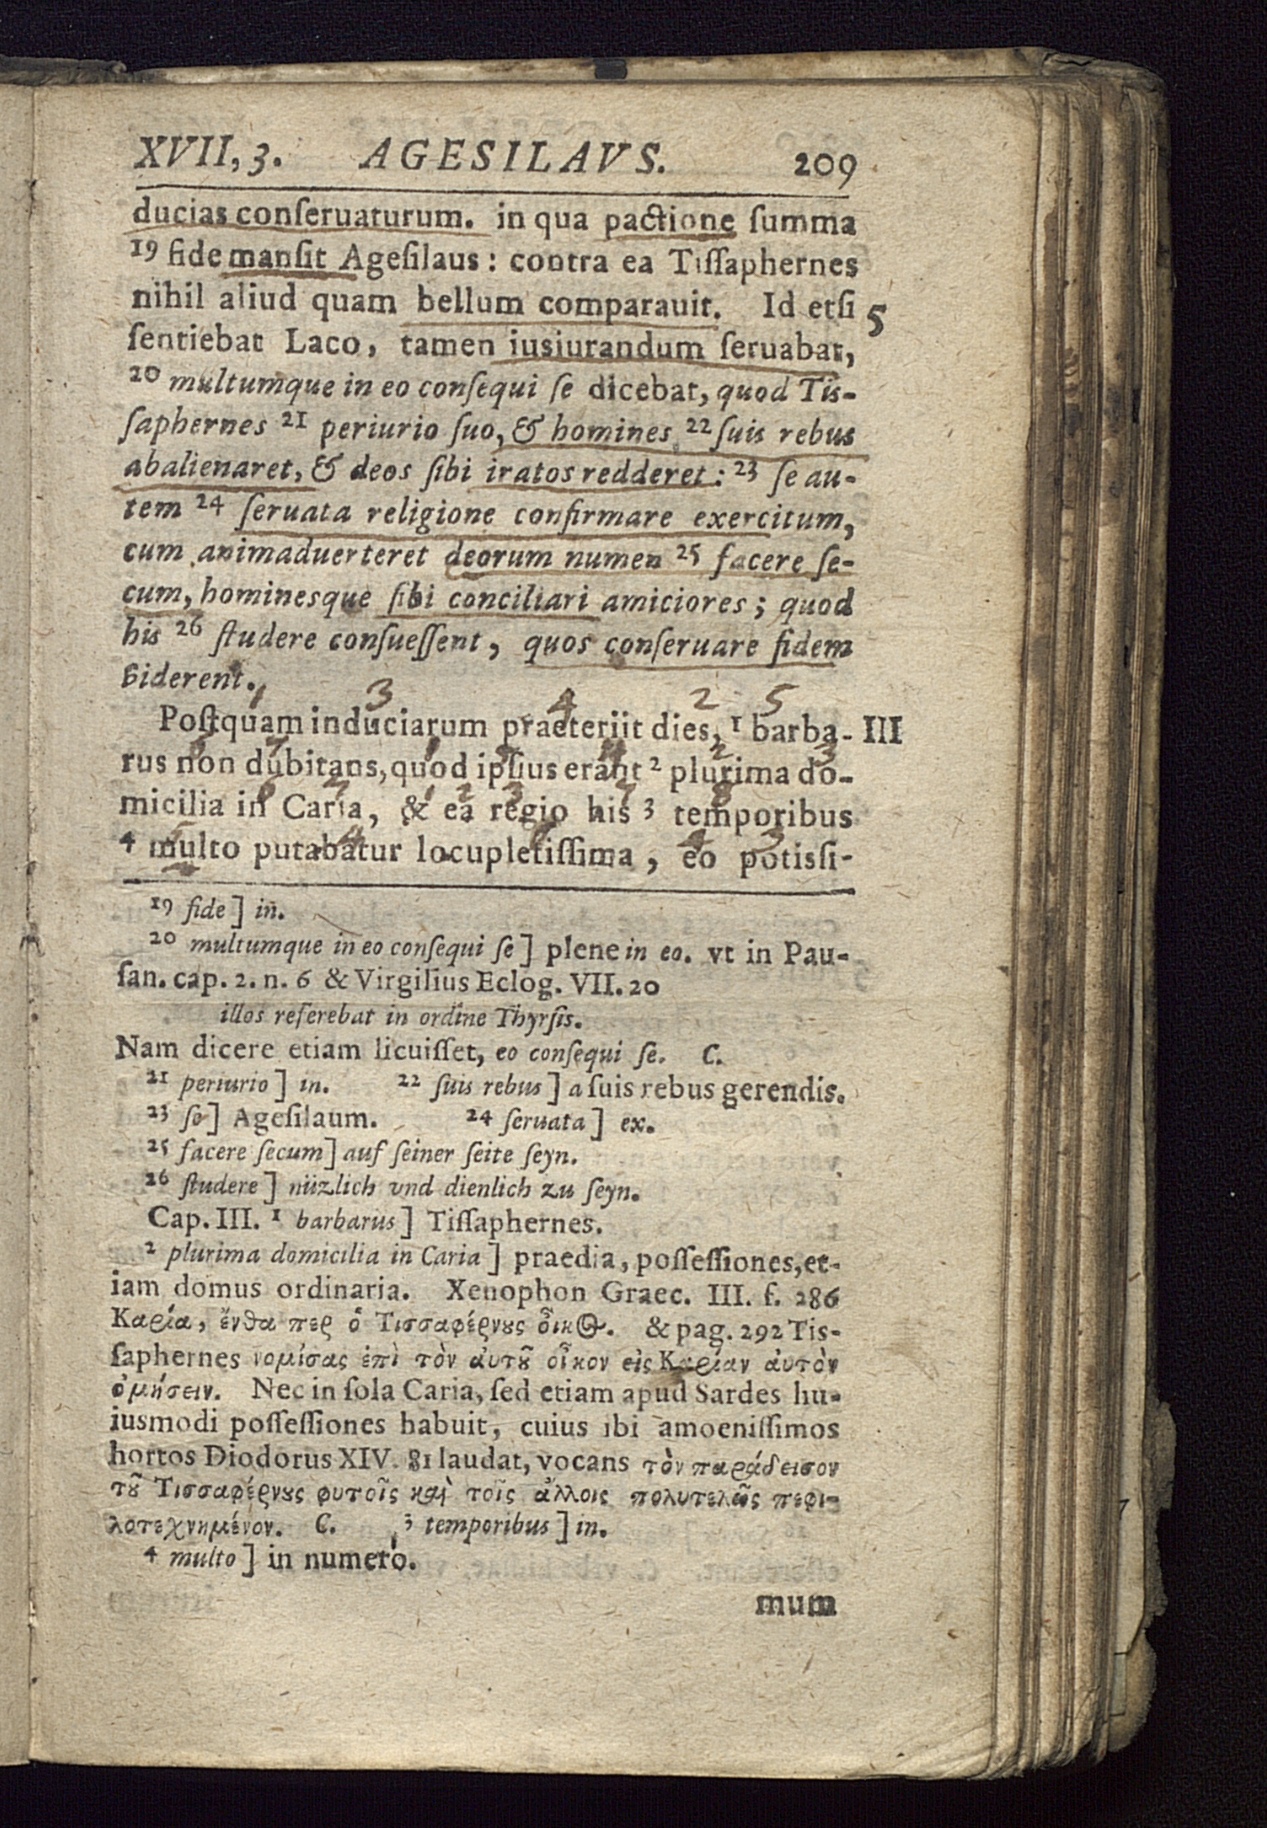 XVII, 3. AGESILAVS. 209
ducias conſeruaturum. in qua pactione ſumma
19 fide manſit Ageſilaus: contra ea Tiſſaphernes
nihil aliud quam bellum comparauit. Id etſi 5
ſentiebat Laco, tamen iusiurandum ſeruabat,
20 multumque in eo conſequi ſe dicebat, quod Tis-
ſaphernes 21 periurio ſuo, & homines 22 ſuis rebus
abalienaret, & deos ſibi iratos redderet: 23 ſe au-
tem 24 ſeruata religione confirmare exercitum,
cum animaduerteret deorum numen 25 facere ſe-
cum, hominesque ſibi conciliari amiciores; quod
his 26 ſtudere conſueſſent, quos conſeruare fidem
viderent.
1 3 4 2 5
Poſtquam induciarum praeteriit dies, 1 barba- III
rus non dubitans, quod ipſius erant 2 plurima do-
micilia in Caria, & ea regio his 3 temporibus
4 multo putabatur locupletiſſima, eo potisſi-
19 fide] in.
20 multumque in eo conſequi ſe] plene in eo. vt in Pau-
ſan. cap. 2. n. 6 & Virgilius Eclog. VII. 20
illos referebat in ordine Thyrſis.
Nam dicere etiam licuiſſet, eo conſequi ſe. C.
21 periurio] in. 22 ſuis rebus] a ſuis rebus gerendis.
23 ſe] Ageſilaum. 24 ſeruata] ex.
25 facere ſecum] auf ſeiner ſeite ſeyn.
26 ſtudere] nüzlich vnd dienlich zu ſeyn.
Cap. III. 1 barbarus] Tiſſaphernes.
2 plurima domicilia in Caria] praedia, poſſeſſiones, et-
iam domus ordinaria. Xenophon Graec. III. f. 286
Καρία, ἔνθα περ ὁ Τισσαφέρνους οἶκος. & pag. 292 Tis-
ſaphernes νομίσας ἐπὶ τὸν αὑτοῦ οἶκον εἰς Καρίαν αὐτὸν
ὁρμήσειν. Nec in ſola Caria, ſed etiam apud Sardes hu-
iusmodi poſſeſſiones habuit, cuius ibi amoeniſſimos
hortos Diodorus XIV. 81 laudat, vocans τὸν παράδεισον
τοῦ Τισσαφέρνους φυτοῖς καὶ τοῖς ἄλλοις πολυτελῶς πεφι-
λοτεχνημένον. C. 3 temporibus] in.
4 multo] in numero.
mum